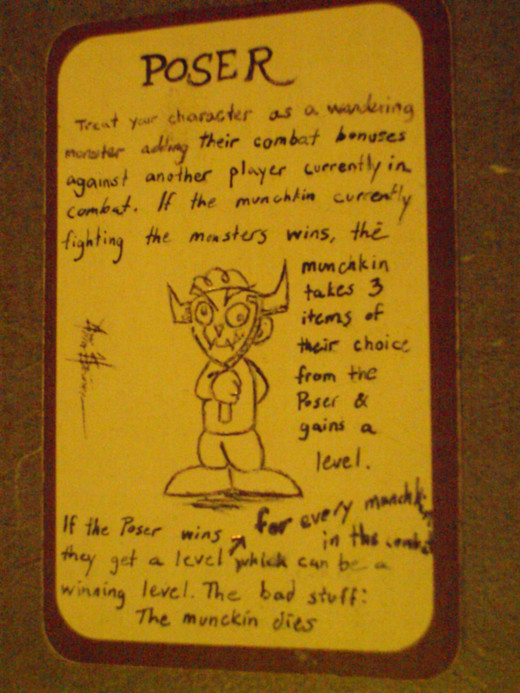 POSER
Treat your character as a wandering
monster adding their combat bonuses
against another player currently in
combat. If the munchkin currently
fighting the monsters wins, the
munchkin
takes 3
items of
their choice
from the
Poser &
gains a
level.
If the Poser wins for every munchkin
in the combat
they get a level which can be a
winning level. The bad stuff:
The munckin dies